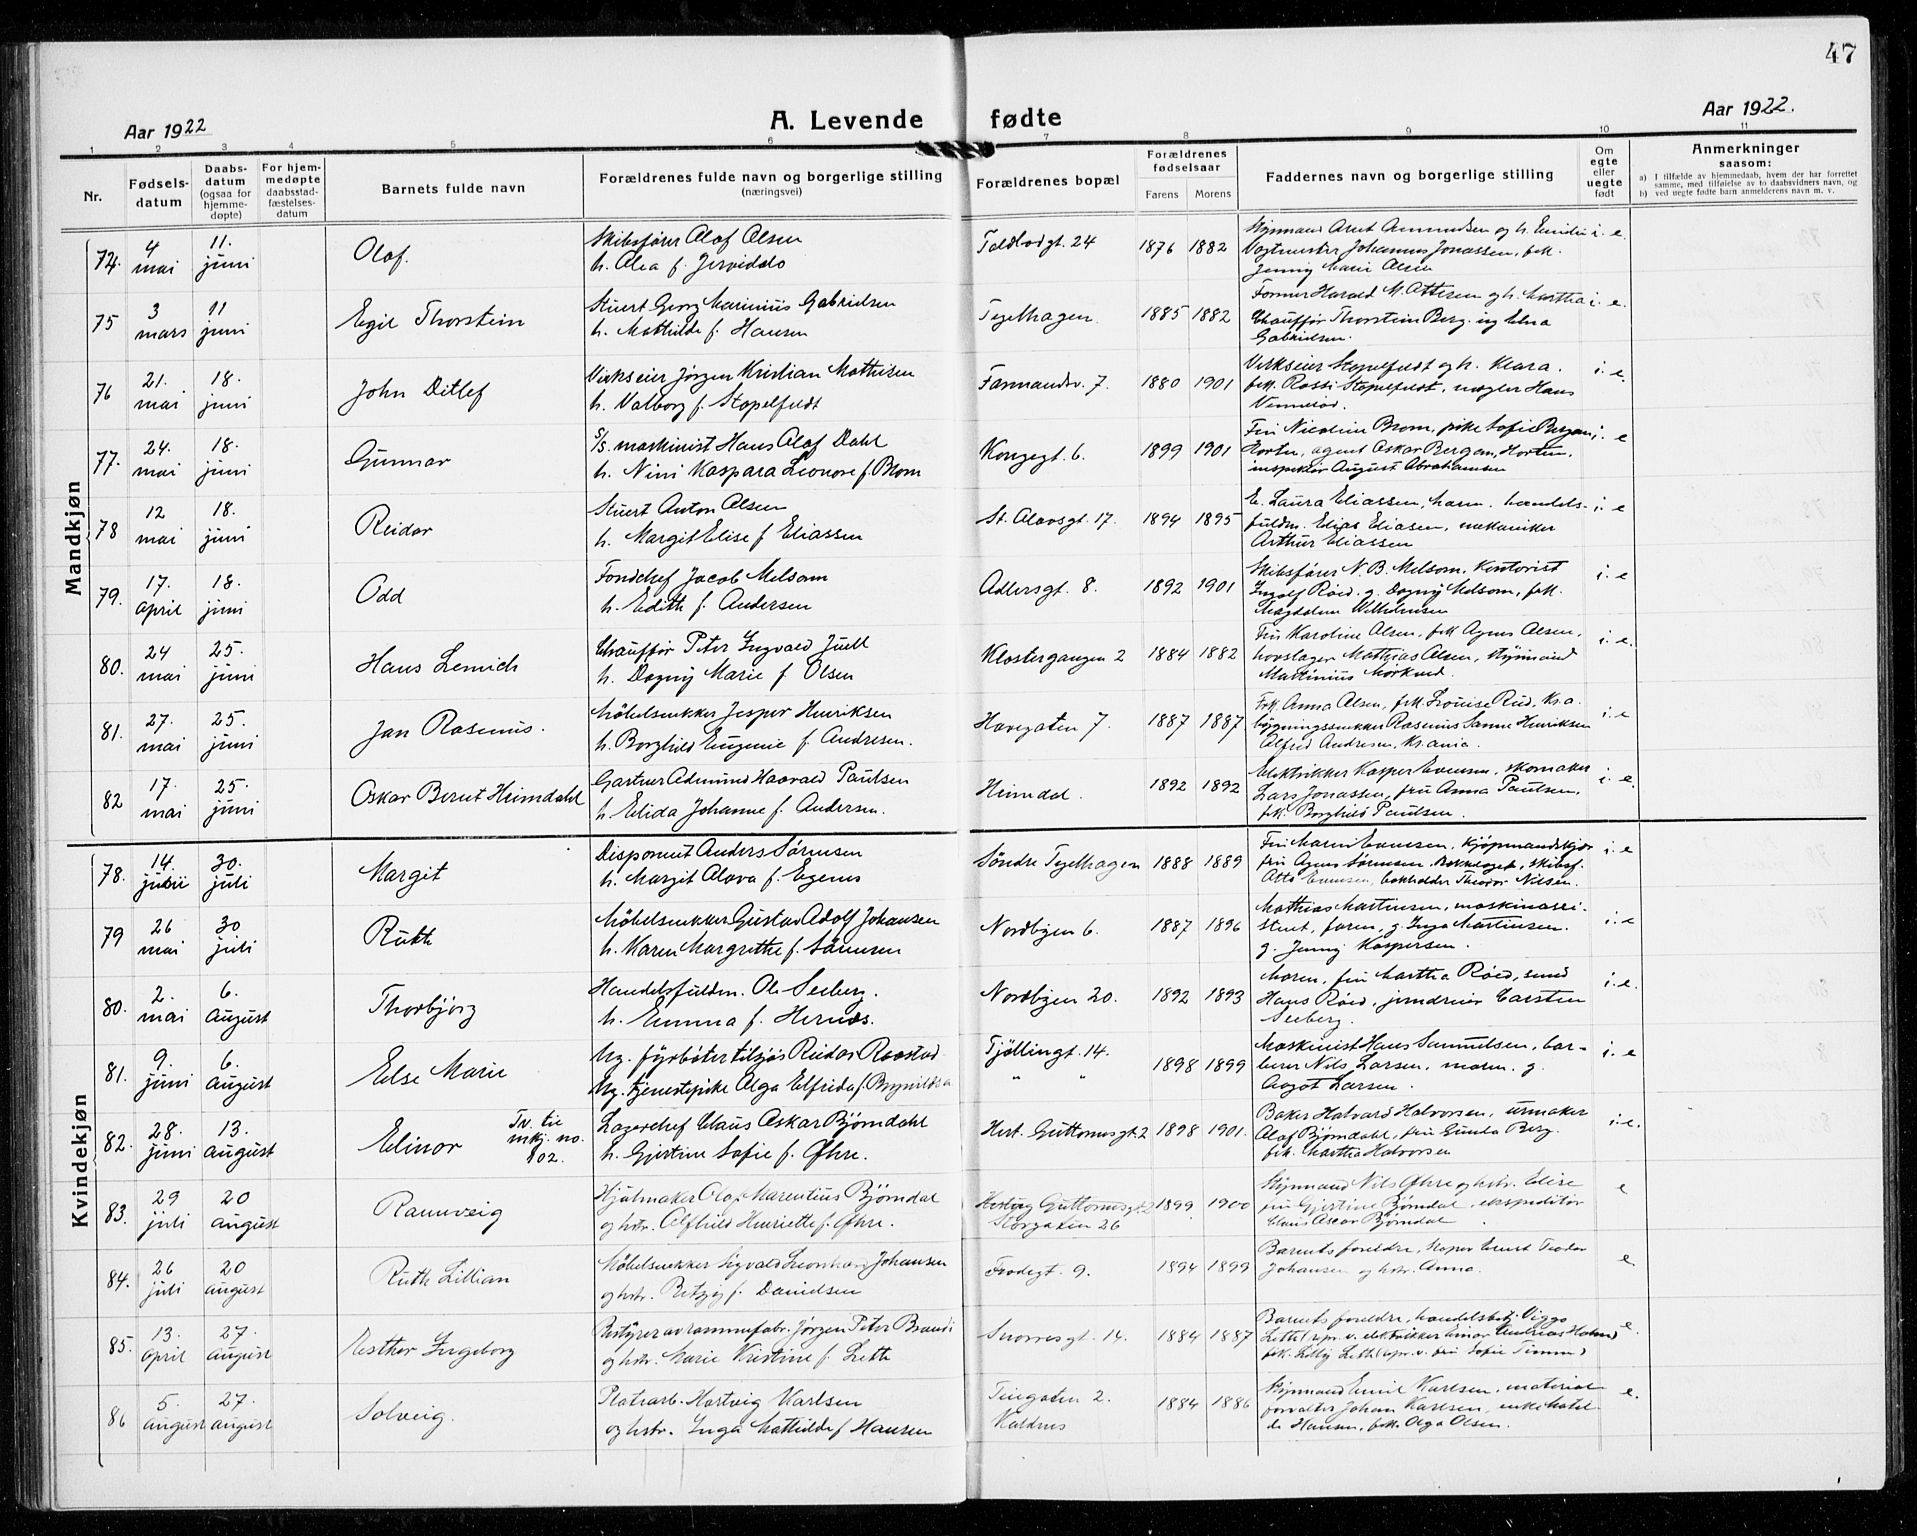 47
Aar 1922
A. Levende fødte
Aar 1922.
1 2 3 4 5 6 7 8 9 10 11
Nr.
Fødsels-
datum
Daabs-
datum
(ogsaa for
hjemme-
døpte)
For hjem-
medøpte
daabsstad-
fæstelses-
datum
Barnets fulde navn
Forældrenes fulde navn og borgerlige stilling
(næringsvei)
Forældrenes bopæl
Forældrenes
fødselsaar
Farens Morens
Faddernes navn og borgerlige stilling
Om
egte
eller
uegte
født
Anmerkninger
saasom:
a) I tilfælde av hjemmedaab, hvem der har forrettet
samme, med tilføielse av to daabsvidners navn, og
b) ved uegte fødte barn anmelderens navn m. v.
Mandkjøn
74. 4 mai 11. juni Olaf.
Skibsfører Olaf Olsen
h. Alea f.
Toldbodgt. 24 1876 1882
Styrmand Arnt Amundsen og h. Emilie
Vogtmester Johannes Jonassen, frk.
Jenny Marie Olsen
i. e.
75 3 mars 11 juni Egil Thorstein
Stuert Georg Marinius Gabrielsen
h. Mathilde f. Hansen
Teglhagen. 1885 1882
Former Harald M. Attersen og h. Martha
Chauffør Thorstein Berg. og Elna
Gabrielsen.
i. e.
76 21. mai 18. juni John Ditlef
Virkseier Jørgen Kristian Mathisen
h. Valborg f. Stapelfeldt
Farmandsv. 7. 1880 1901
Virkseier Stapelfeldt og h. Klara.
frk. Rossi Stapelfeldt, mægler Hans
Vennerød.
i. e.
77. 24. mai 18. juni Gunnar
S/s. maskinist Hans Olaf Dahl
h. Nini Kaspara Leonore f. Brom
Kongegt. 6. 1899 1901
Fru Nicoline Brom, pike Sofie Bergan
Horten, agent Oskar Bergan, Horten,
inspektør August Abrahamsen
i. e
78 12 mai 18. juni Reidar
Stuert Anton Olsen
h. Margit Elise f Eliassen
St. Olavsgt. 17. 1894 1895
E. Laura Eliassen, harm. handels-
fuldm. Elias Eliasen, mekaniker
Arthur Eliassen
i. e
79. 17. april 18. juni Odd
Fondchef Jacob Melsom
h. Edith f. Andersen
Adlersgt. 8. 1892 1901
Skibsfører N. B. Melsom, kontorist
Ingolf Røed. g. Dagny Melsom, frk.
Magdalene Wilhelmsen
i. e
80. 24 mai 25. juni Hans Lemich
Chauffør Peter Ingvald Juell
h. Dagny Marie f Olsen
Klostergangen 2 1884 1882
Fru Karoline Olsen, frk Agnes Olsen.
hovslager Mathias Olsen, styrmand
Martinius Mørkved.
i. e.
81. 27. mai 25. juni Jan Rasmus.
Møbelsnekker Jesper Henriksen
h. Borghild Eugenie f. Andresen.
Havegaten 7. 1887 1887
Frk. Anna Olsen, frk. Louise Rud, Kr.a.
bygningssnekker Rasmus Sanne Henriksen
Alfred Andresen, Kr.ania.
i. e
82 17. mai 25. juni Oskar Bernt Heimdahl
Gartner Admund Haavald Paulsen
h Elida Johanne f. Andersen.
Heimdal. 1892 1892
Elektrikker Kasper Evensen, skomaker
Lars Jonassen, fru Anna Paulsen,
frk. Borghild Paulsen.
i. e.
Kvindekjøn
78. 14. juni 30. juli Margit
Disponent Anders Sørensen
h. Margit Olava f. Egenes
Søndre Teglhagen 1888 1889
Fru Marn Evensen, Kjøpmandskjær
fru Agnes Sørensen, Bekkelaget, skibsf.
Otto Evensen, bokholder Theodor Nilsen.
i. e
79 26 mai 30 juli Ruth
Møbelsnekker Gustav Adolf Johansen
h. Karen Margrethe f. Sørensen
Nordbyen 6. 1887 1896
Mathias Martinsen, maskinassi-
stent, faren, g. Inga Martinsen.
g. Jenny Kaspersen.
i. e
80. 2. mai 6. August Thorbjørg
Handelsfuldm. Ole Seeberg.
h. Emma f. Hernes.
Nordbyen 20. 1892 1893
Moren, fru Martha Røed, smed
Hans Røed, jerndreier Carsten
Seeberg.
i. e.
81. 9. juni 6. August Else Marie
Ug. fyrbøter tilsjøs Reidar Raastad
Ug. tjenestepike Olga Elfrida f. Brynildsen
Tjøllinggt. 14. 1898 1899
" "
Maskinist Hans Samuelsen, bar-
berer Nils Larsen, moren. g.
Aagot Larsen.
i. e
82. 28. juni 13. august Elinor Tv. til
mkj. no.
102.
Lagerchef Claus Oskar Bjørndahl
h. Gjertine Sofie f. Øhre.
Hert. Guttormsgt. 2 1898 1901.
Baker Halvard Halvorsen, urmaker
Olaf Bjørndahl, fru Gunda Berg.
frk. Martha Halvorsen
i. e.
83. 29 juli 20 august Rannveig
Hjulmaker Olaf Marentius Bjørndal
og hstr. Alfhild Henriette f. Øhre.
Hertug Guttormsgt. 2 1899 1900
Storgaten 26
Styrmand Nils Øhre og hstr. Elise
fru Gjertine Bjørndal, ekspeditør
Claus Oscar Bjørndal
e
84. 26 juli 20 august Ruth Lillian
Møbelsnekker Sigvald Leonhard Johansen
og hstr. Betzy f. Danielsen
Frodegt. 9. 1894 1899
Barnets forældre, Kaper Ernst Teodor
Johansen og hstr. Anna.
e.
85. 13. April 27. August Esther Ingeborg
Bestyrer av rammefabr. Jørgen Peter Brandi
og hstr. Marie Kristine f. Leth
Snorresgt. 14. 1884 1887
Barnets forældre, handelsbetj. Viggo
Leth (repr. v. elektrikker Einar Andreas Holand)
frk. Lilly Leth (repr. v. fru Sofie Timm)
e.
86 5. August 27. august Solveig.
Platearb. Hartvig Karlsen
og hstr. Inga Mathilde f Hansen
Tinegaten 2. 1884 1886
Kaldnes
Styrmand Emil Karlsen, material
forvalter Johan Karlsen, enke Matil-
de Hansen, frk. Olga Olsen.
e.